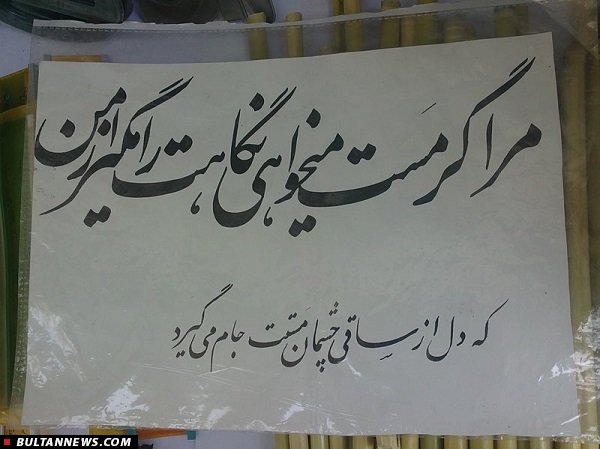 مرا گر مَست میخواهی نگاهت را مگیر از من
که دل از ساقیِ چشمان مَستت جام می گیرد
BULTANNEWS.COM